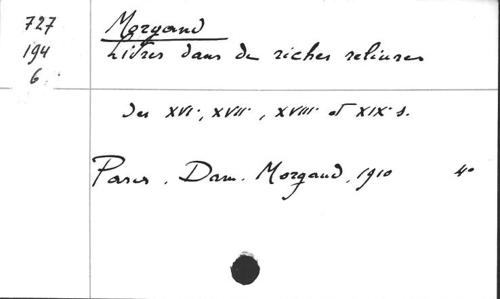 727
194
6
Morgand
Livres dans de riches reliures
des XVIe, XVIIe, XVIIIe et XIXe s.
Paris. Dam. Morgand, 1910 4o